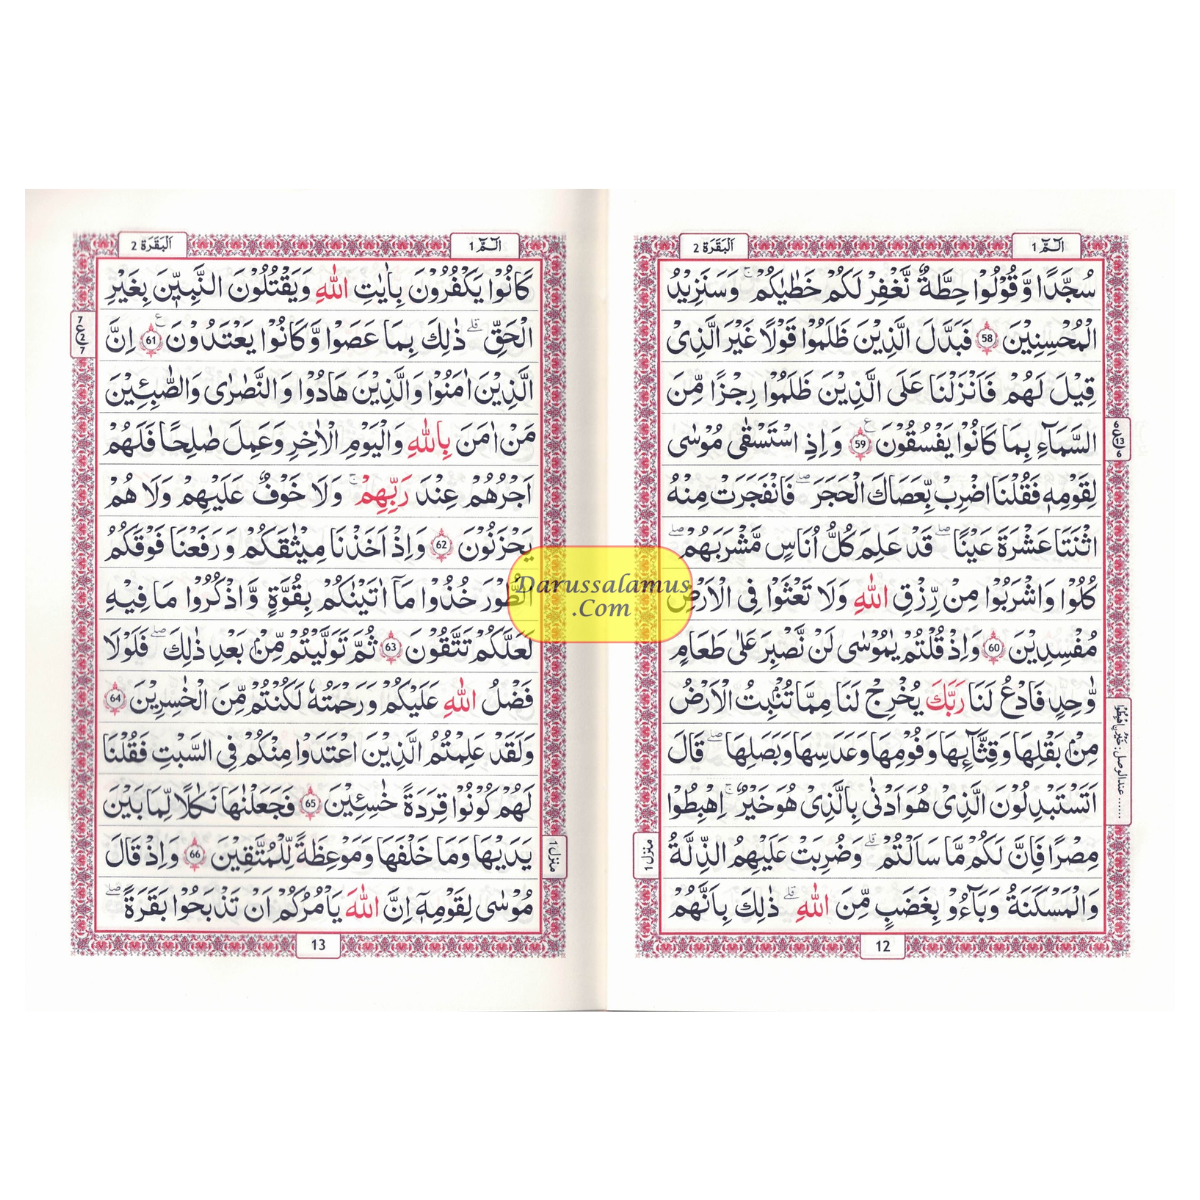 الٓمّٓ 1
اَلْبَقَرَة 2
سُجَّدًا وَّقُوْلُوْا حِطَّةٌ نَّغْفِرْ لَكُمْ خَطٰيٰكُمْ ؕ وَسَنَزِيْدُ
الْمُحْسِنِيْنَ 58 فَبَدَّلَ الَّذِيْنَ ظَلَمُوْا قَوْلًا غَيْرَ الَّذِىْ
قِيْلَ لَهُمْ فَاَنْزَلْنَا عَلَى الَّذِيْنَ ظَلَمُوْا رِجْزًا مِّنَ
السَّمَآءِ بِمَا كَانُوْا يَفْسُقُوْنَ 59 وَاِذِ اسْتَسْقٰى مُوْسٰى
لِقَوْمِهٖ فَقُلْنَا اضْرِبْ بِّعَصَاكَ الْحَجَرَ ؕ فَانْفَجَرَتْ مِنْهُ
اثْنَتَا عَشْرَةَ عَيْنًا ؕ قَدْ عَلِمَ كُلُّ اُنَاسٍ مَّشْرَبَهُمْ ؕ
كُلُوْا وَاشْرَبُوْا مِنْ رِّزْقِ اللّٰهِ وَلَا تَعْثَوْا فِى الْاَرْضِ
مُفْسِدِيْنَ 60 وَاِذْ قُلْتُمْ يٰمُوْسٰى لَنْ نَّصْبِرَ عَلٰى طَعَامٍ
وَّاحِدٍ فَادْعُ لَنَا رَبَّكَ يُخْرِجْ لَنَا مِمَّا تُنْۢبِتُ الْاَرْضُ
مِنْۢ بَقْلِهَا وَقِثَّآىِٕهَا وَفُوْمِهَا وَعَدَسِهَا وَبَصَلِهَا ؕ قَالَ
اَتَسْتَبْدِلُوْنَ الَّذِىْ هُوَ اَدْنٰى بِالَّذِىْ هُوَ خَيْرٌ ؕ اِهْبِطُوْا
مِصْرًا فَاِنَّ لَكُمْ مَّا سَاَلْتُمْ ؕ وَضُرِبَتْ عَلَيْهِمُ الذِّلَّةُ
وَالْمَسْكَنَةُ وَبَآءُوْ بِغَضَبٍ مِّنَ اللّٰهِ ؕ ذٰلِكَ بِاَنَّهُمْ
منزل 1
12
الٓمّٓ 1
اَلْبَقَرَة 2
كَانُوْا يَكْفُرُوْنَ بِاٰيٰتِ اللّٰهِ وَيَقْتُلُوْنَ النَّبِيّٖنَ بِغَيْرِ
الْحَقِّ ؕ ذٰلِكَ بِمَا عَصَوْا وَّكَانُوْا يَعْتَدُوْنَ 61 اِنَّ
الَّذِيْنَ اٰمَنُوْا وَالَّذِيْنَ هَادُوْا وَالنَّصٰرٰى وَالصّٰبِـِٕيْنَ
مَنْ اٰمَنَ بِاللّٰهِ وَالْيَوْمِ الْاٰخِرِ وَعَمِلَ صَالِحًا فَلَهُمْ
اَجْرُهُمْ عِنْدَ رَبِّهِمْ ۚ وَلَا خَوْفٌ عَلَيْهِمْ وَلَا هُمْ
يَحْزَنُوْنَ 62 وَاِذْ اَخَذْنَا مِيْثٰقَكُمْ وَرَفَعْنَا فَوْقَكُمُ
الطُّوْرَ خُذُوْا مَآ اٰتَيْنٰكُمْ بِقُوَّةٍ وَّاذْكُرُوْا مَا فِيْهِ
لَعَلَّكُمْ تَتَّقُوْنَ 63 ثُمَّ تَوَلَّيْتُمْ مِّنْۢ بَعْدِ ذٰلِكَ ۚ فَلَوْلَا
فَضْلُ اللّٰهِ عَلَيْكُمْ وَرَحْمَتُهٗ لَكُنْتُمْ مِّنَ الْخٰسِرِيْنَ 64
وَلَقَدْ عَلِمْتُمُ الَّذِيْنَ اعْتَدَوْا مِنْكُمْ فِى السَّبْتِ فَقُلْنَا
لَهُمْ كُوْنُوْا قِرَدَةً خٰسِـِٕيْنَ 65 فَجَعَلْنٰهَا نَكَالًا لِّمَا بَيْنَ
يَدَيْهَا وَمَا خَلْفَهَا وَمَوْعِظَةً لِّلْمُتَّقِيْنَ 66 وَاِذْ قَالَ
مُوْسٰى لِقَوْمِهٖۤ اِنَّ اللّٰهَ يَاْمُرُكُمْ اَنْ تَذْبَحُوْا بَقَرَةً ؕ
منزل 1
13
Darussalamus
.Com